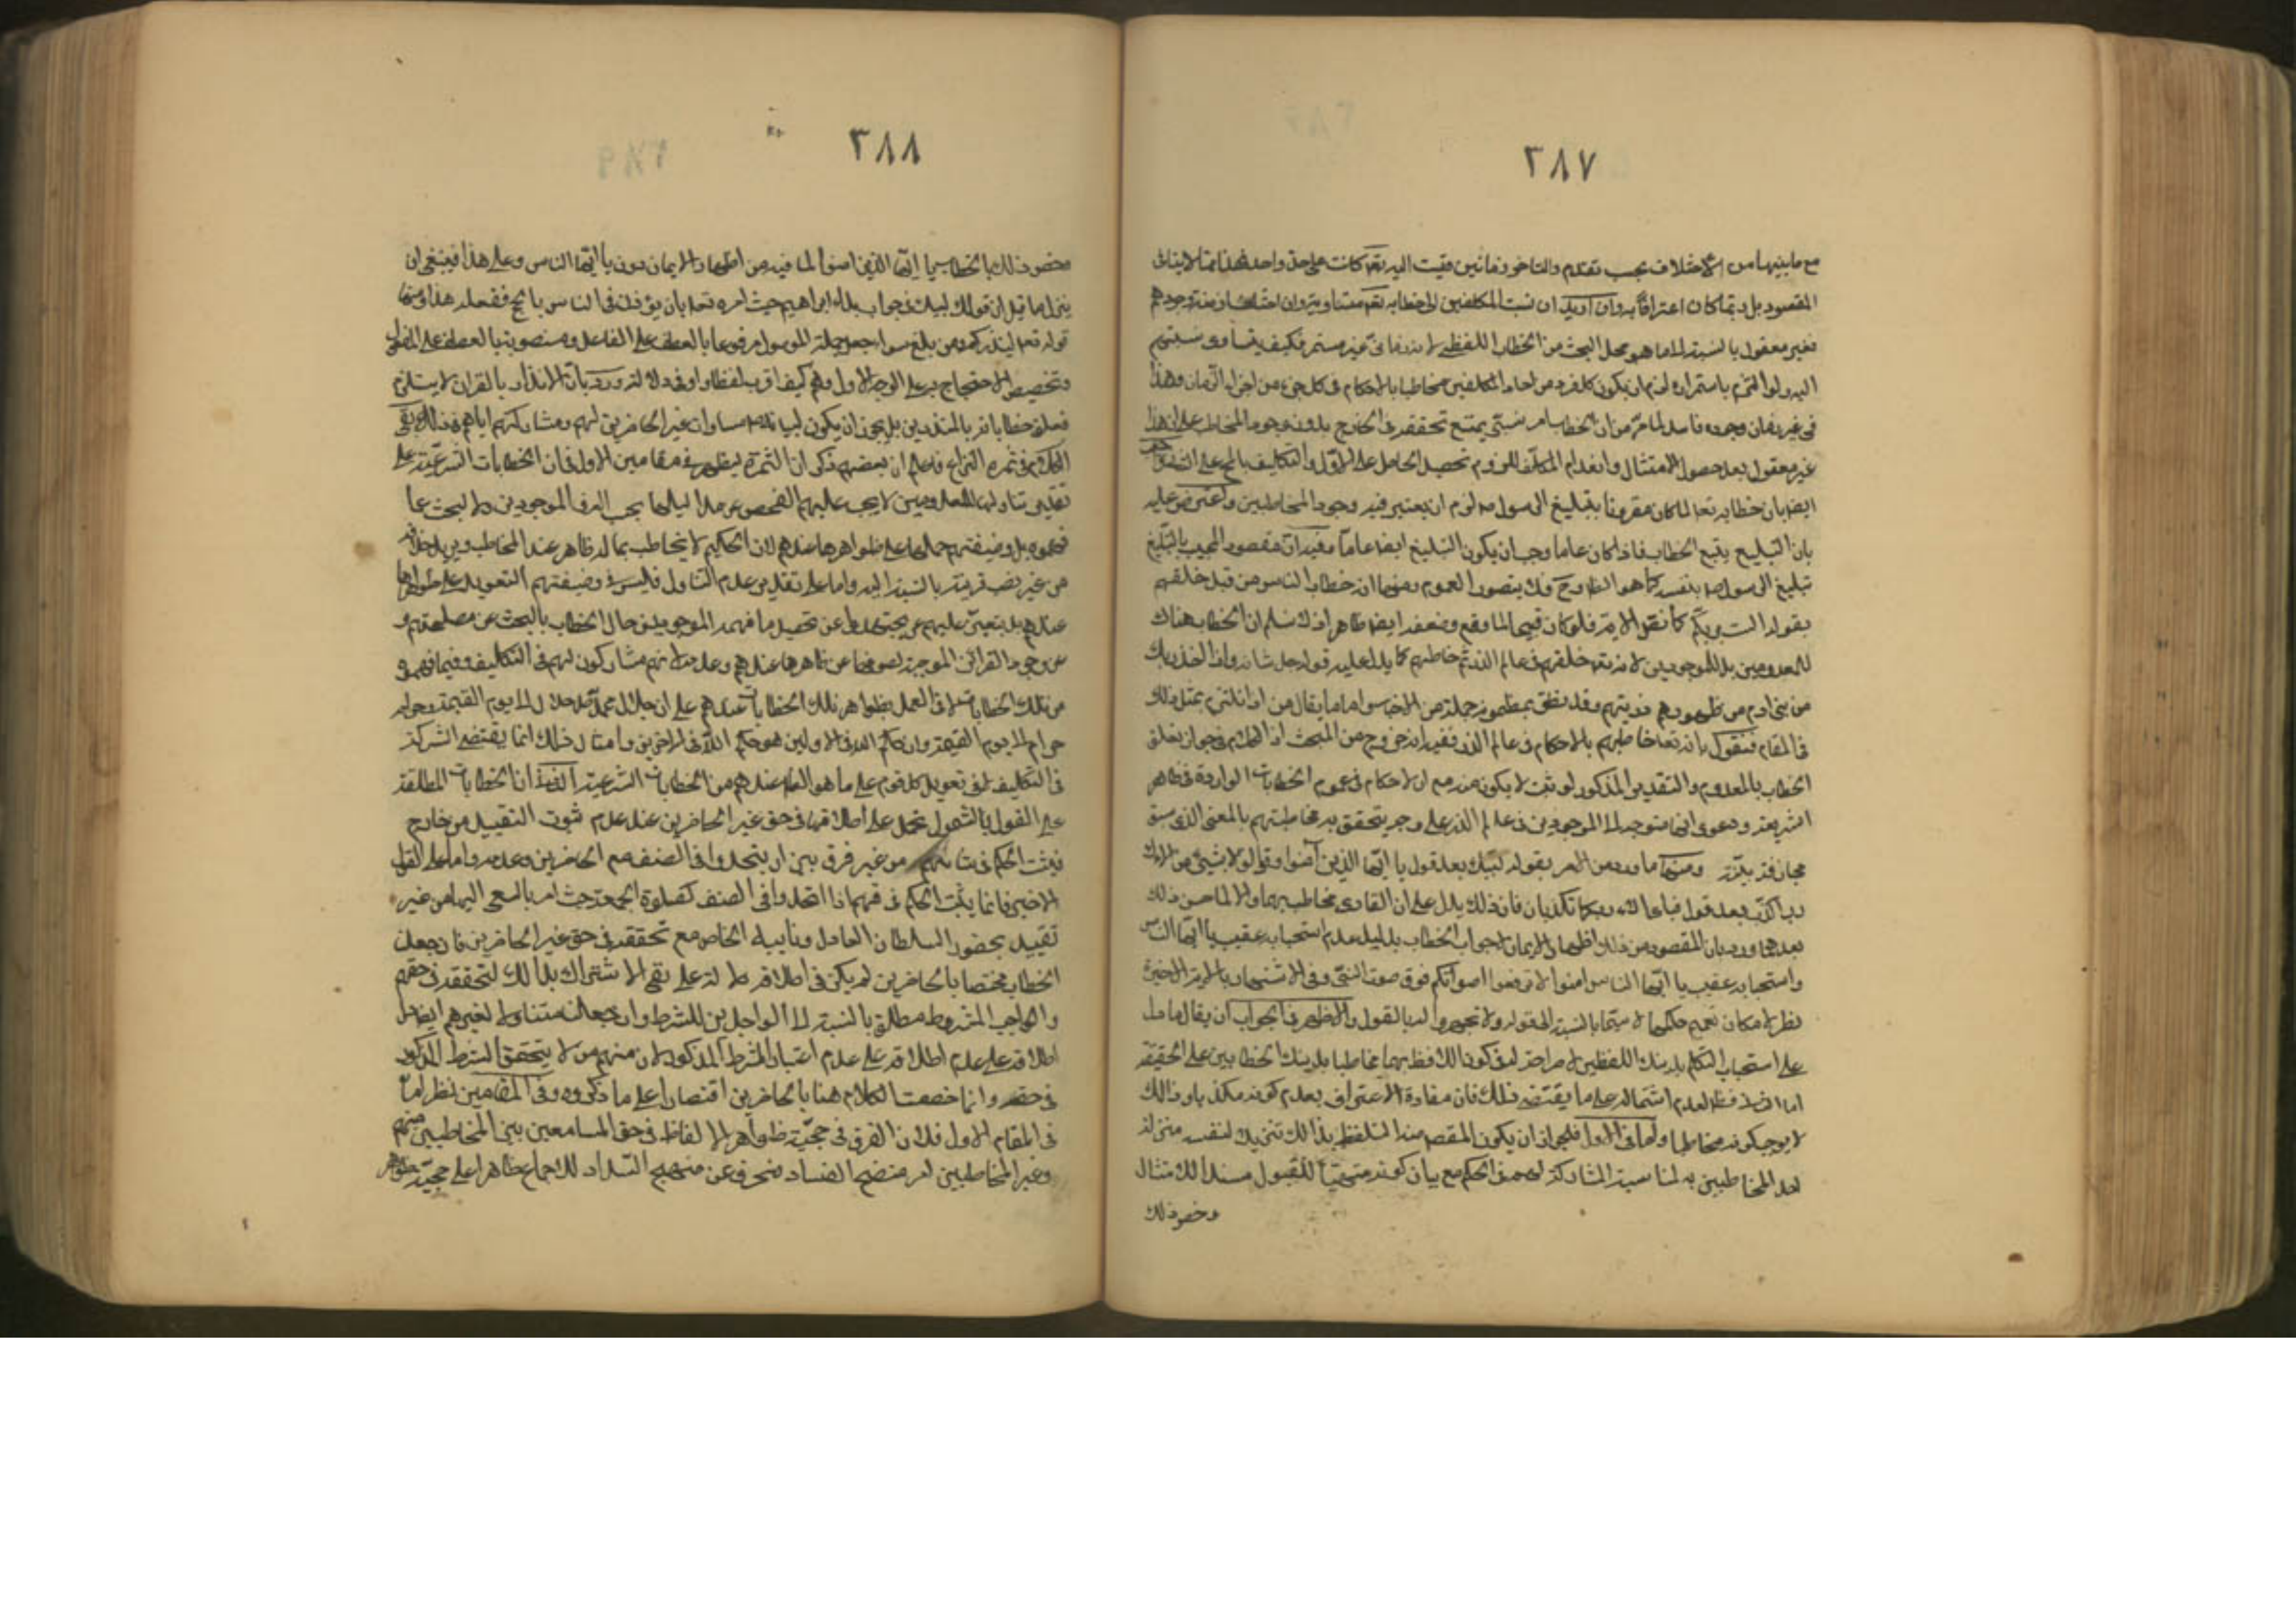 ٣٨٧
مع ما بينهما من الاختلاف بحب تقدم والتاخر زمانين فقيت اليه تعا كانت على حد واحد فهذا مما لا ينافى
المقصود بل ربما كان اعترافا به وان اريد ان نسب المكلفين الى خطابه تعا متساوية وان اختلف ازمنة وجودهم
فغير معقول بالنسبة الى ما هو محل البحث من الخطاب اللفظى لانه زمانى غير مستمر فكيف يتساوى نسبتهم
اليه ولو التزم باستمراره لزم ان يكون كل فرد من احاد المكلفين مخاطبا بالاحكام فى كل جزء من اجزاء الزمان وهذا
فى غير زمان وجوده فاسد لما مر من ان الخطاب امر نسبى يمتنع تحققه فى الخارج بدون وجود المخاطب على ان هذا
غير معقول بعد حصول الامتثال وانعدام المكلف للزوم تحصيل الحاصل على الاول والتكليف بالمح على الثانى
ايضا بان خطابه تعا لما كان مقرونا بتبليغ الرسول ص لزم ان يعتبر فيه وجود المخاطبين واعترض عليه
بان التبليغ يتبع الخطاب فاذا كان عاما وجب ان يكون التبليغ ايضا عاما وفيه ان مقصود المجيب بالتبليغ
تبليغ الرسول ص بنفسه كما هو الظ وح فلا يتصور العموم ومنها ان خطاب الناس من قبل خلقهم
بقوله الست بربكم كما نقل الاية فلو كان قبيحا لما وقع وضعفه ايضا ظاهر اذ لا نسلم ان الخطاب هناك
للمعدومين بل للموجودين لانه تعا خلقهم فى عالم الذر ثم خاطبهم كما يدل عليه قوله جل شانه واذ اخذ ربك
من بنى ادم من ظهورهم ذريتهم وقد نطق بمظمونه جملة من الاخبار واما ما يقال من انا نلتزم بمثل ذلك
فى المقام فنقول بانه تعا خاطبهم بالاحكام فى عالم الذر ففيه انه خروج من المبحث اذ الكلام فى جواز تعلق
الخطاب بالمعدوم والتقدير المذكور لو ثبت لا يكون منه مع ان لا كلام فى عموم الخطابات الواردة فى ظاهر
الشريعة ودعوى انها متوجه الى الموجودين فى عالم الذر على وجه يتحقق به مخاطبتهم بالمعنى الذى سبق
مجازفة بينة ومنها ما ورد من الامر بقوله لبيك بعد قول يا ايها الذين آمنوا وقول لا بشىء من آلائك
رب اكذب بعد قول فباى الاء ربكما تكذبان فان ذلك يدل على ان القارى مخاطب بهما والا لما حسن ذلك
بعدهما ورد بان المقصود من ذلك اظهار الايمان لا جواب الخطاب بدليل عدم استحبابه عقيب يا ايها الناس
واستحبابه عقيب يا ايها الناس امنوا لا ترفعوا اصواتكم فوق صوت النبى وفى الاستشهاد بالاية الاخيرة
نظر لامكان تعميم حكمها لا سيما بالنسبة الى قوله ولا تجهروا له بالقول والاظهر فى الجواب ان يقال ما دل
على استحباب التكلم بذينك اللفظين لا صراحة له فى كون اللافظ بهما مخاطبا بذينك الخطابين على الحقيقة
اما فى فظ لعدم اشتماله على ما يقتضى ذلك فان مفادة الاعتراف بعدم كونه مكذبا وذلك
لا يوجب كونه مخاطبا واما فى الاول فلجواز ان يكون المقصد منه التلفظ بذلك تنزيلا لنفسه منزلة
احد المخاطبين به لمناسبة المشاركة لهم فى الحكم مع بيان كونه متهيئا للقبول مستعدا للامتثال
وخصوذلك
٣٨٨
مخصوذلك بالخطاب بيا ايها الذين امنوا لما فيه من اظهار الايمان دون يا ايها الناس وعلى هذا فينبغى ان
ينزل ما قيل ان قولك لبيك فى جواب نداء ابراهيم حيث امره تعا بان يؤذن فى الناس بالحج ففعله هذا ومنها
قوله تعا لينذركم ومن بلغ سواء جعل جملة الموصول مرفوعا بالعطف على الفاعل ومنصوبة بالعطف على المفعول
وتخصيص الاحتجاج به على الوجه الاول وهم كيف اقرب لفظا واوفى دلالة ورد بان الانذار بالقران لا يستلزم
تعلق خطاباته بالمنذرين بل يجوز ان يكون لبيانه مساواة غير الحاضرين لهم ومشاركتهم اياهم فى ذلك بقى
الكلام فى ثمرة النزاع فاعلم ان بعضهم ذكر ان الثمرة يظهر فى مقامين الاول فى ان الخطابات الشرعية على
تقدير تناولها للمعدومين لا يجب عليهم الفحص عن مداليلها بحب العرف الموجودين ولا البحث عما
فهموه بل وضيفتهم حملها على ظواهرها عندهم لان الحكيم لا يخاطب بما له ظاهر عند المخاطب ويريد خلافه
من غير نصب قرينة بالنسبة اليه واما على تقدير عدم التناول فليس فى وضيفتهم التعويل على ظواهرها
عندهم بل يتعين عليهم عن تحصيل ما فهمه الموجودين حال الخطاب بالبحث عن مصطلحهم و
عن وجود القرائن الموجبة لصرفها عن ظاهرها عندهم وعدمه لانهم مشاركون لهم فى التكاليف وفيما فهموه
من تلك الخطابات لا فى العمل بظواهر تلك الخطابات عندهم على ان حلال محمد ص حلال الى يوم القيمة وحرامه
حرام الى يوم القيمة وان حكم الله فى الاولين هو حكم الله فى الاخرين وامثال ذلك انما يقتضى الشركة
فى التكاليف لا فى تعويل كل قوم على ما هو الظاهر عندهم من الخطابات الشرعية الثانية ان الخطابات المطلقة
على القول بالشمول تحمل على اطلاقها فى حق غير الحاضرين عند عدم ثبوت التقييد من خارج
فيثبت الحكم فى شانهم من غير فرق بين ان يتحدوا فى الصنف مع الحاضرين وعدمه واما على القول
الاخير فانما يثبت الحكم فى حقهم اذا اتحدوا فى الصنف كصلوة الجمعة حيث امر بالسعى اليها من غير
تقييد بحضور السلطان العادل ونايبه الخاص مع تحققه فى حق غير الحاضرين فان جعلنا
الخطاب مختصا بالحاضرين لم يكن فى اطلاقه دلالة على نفى الاشتراك بذلك لتحققه فى حقهم
والواجب المشروط مطلق بالنسبة الى الواجدين للشرط وان جعلناه متناولا لغيرهم ايضا دل
اطلاقه على عدم اطلاقه على عدم اعتبار الشرط المذكور لان منهم من لا يتحقق الشرط المذكور
فى حقه وانما خصصت الكلام هنا بالحاضرين اقتصارا على ما ذكروه وفى المقامين نظر اما
فى المقام الاول فلان الفرق فى حجية ظواهر الالفاظ فى حق السامعين بين المخاطبين منهم
وغير المخاطبين امر متضح الفساد منحرف عن منهج السداد للاجماع ظاهرا على حجية ظواهر